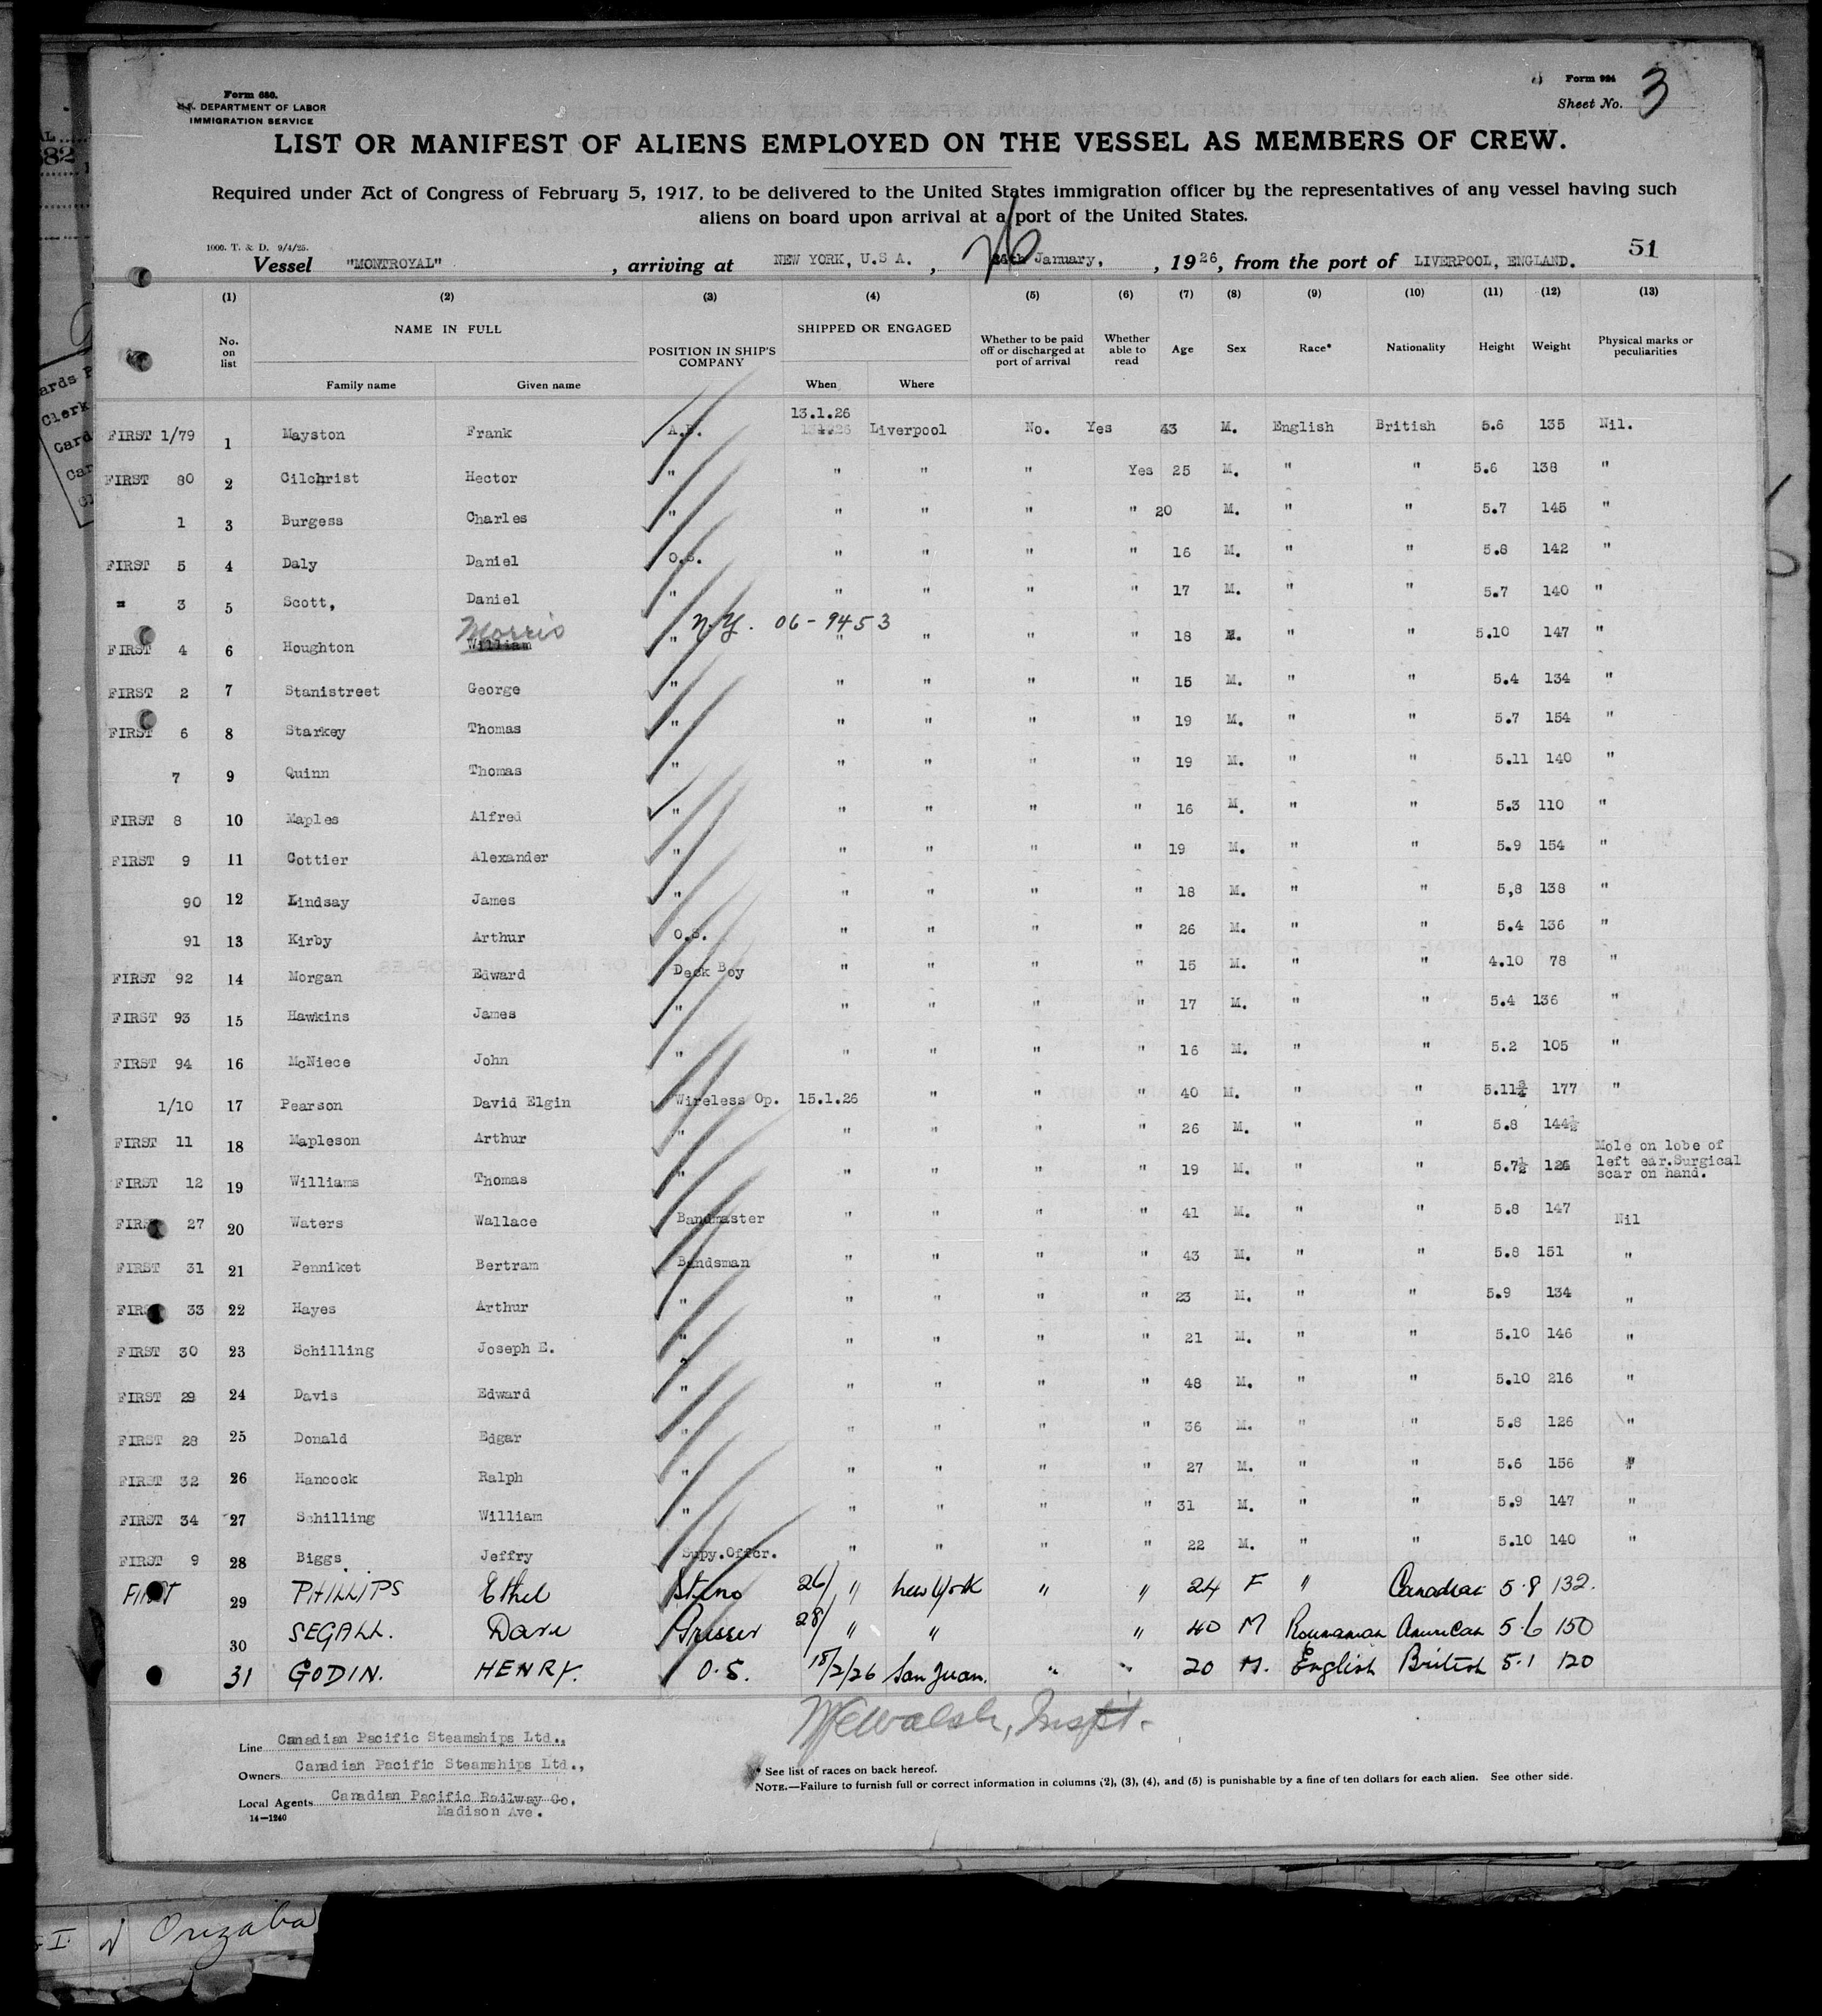 Form 680.
U.S. DEPARTMENT OF LABOR
IMMIGRATION SERVICE
Form 924
Sheet No. 3
LIST OR MANIFEST OF ALIENS EMPLOYED ON THE VESSEL AS MEMBERS OF CREW.
Required under Act of Congress of February 5, 1917, to be delivered to the United States immigration officer by the representatives of any vessel having such
aliens on board upon arrival at a port of the United States.
1000. T. & D. 9/4/25.
51
Vessel "MONTROYAL", arriving at NEW YORK, U.S.A., 26 January, 1926, from the port of LIVERPOOL, ENGLAND.
(1) (2) (3) (4) (5) (6) (7) (8) (9) (10) (11) (12) (13)
No. on list NAME IN FULL Family name Given name POSITION IN SHIP'S COMPANY SHIPPED OR ENGAGED When Where Whether to be paid off or discharged at port of arrival Whether able to read Age Sex Race* Nationality Height Weight Physical marks or peculiarities
13.1.26
FIRST 1/79 1 Mayston Frank A.B. Liverpool No. Yes 43 M. English British 5.6 135 Nil.
FIRST 80 2 Gilchrist Hector " " " " Yes 25 M. " " 5.6 138 "
1 3 Burgess Charles " " " " " 20 M. " " 5.7 145 "
FIRST 5 4 Daly Daniel O.S. " " " " 16 M. " " 5.8 142 "
" 3 5 Scott, Daniel " " " " " 17 M. " " 5.7 140 "
Morris N.Y. 06-9453
FIRST 4 6 Houghton William " " " " " 18 M. " " 5.10 147 "
FIRST 2 7 Stanistreet George " " " " " 15 M. " " 5.4 134 "
FIRST 6 8 Starkey Thomas " " " " " 19 M. " " 5.7 154 "
7 9 Quinn Thomas " " " " " 19 M. " " 5.11 140 "
FIRST 8 10 Maples Alfred " " " " " 16 M. " " 5.3 110 "
FIRST 9 11 Cottier Alexander " " " " " 19 M. " " 5.9 154 "
90 12 Lindsay James " " " " " 18 M. " " 5,8 138 "
91 13 Kirby Arthur O.S. " " " " 26 M. " " 5.4 136 "
FIRST 92 14 Morgan Edward Deck Boy " " " " 15 M. " " 4.10 78 "
FIRST 93 15 Hawkins James " " " " " 17 M. " " 5.4 136 "
FIRST 94 16 McNiece John " " " " " 16 M. " " 5.2 105 "
1/10 17 Pearson David Elgin Wireless Op. 15.1.26 " " " 40 M. " " 5.11¾ 177 "
FIRST 11 18 Mapleson Arthur " " " " " 26 M. " " 5.8 144½
FIRST 12 19 Williams Thomas " " " " " 19 M. " " 5.7½ 126 Mole on lobe of left ear.Surgical scar on hand.
FIRST 27 20 Waters Wallace Bandmaster " " " " 41 M. " " 5.8 147 Nil
FIRST 31 21 Penniket Bertram Bandsman " " " " 43 M. " " 5.8 151 "
FIRST 33 22 Hayes Arthur " " " " " 23 M. " " 5.9 134 "
FIRST 30 23 Schilling Joseph E. " " " " " 21 M. " " 5.10 146 "
FIRST 29 24 Davis Edward " " " " " 48 M. " " 5.10 216 "
FIRST 28 25 Donald Edgar " " " " " 36 M. " " 5.8 126 "
FIRST 32 26 Hancock Ralph " " " " " 27 M. " " 5.6 156 "
FIRST 34 27 Schilling William " " " " " 31 M. " " 5.9 147 "
FIRST 9 28 Biggs Jeffry Supy.Offcr. " " " " 22 M. " " 5.10 140 "
FIRST 29 PHILLIPS Ethel Steno 26/ " New York " " 24 F " Canadian 5.8 132.
30 SEGALL. Dave Presser 28/ " " " 40 M Roumanian American 5.6 150
31 GODIN. HENRY. O.S. 18/2/26 San Juan. " " 20 M. English British 5.1 120
Walsh, Inspt.
Line Canadian Pacific Steamships Ltd.,
Owners Canadian Pacific Steamships Ltd.,
Local Agents Canadian Pacific Railway Co.
Madison Ave.
14—1240
* See list of races on back hereof.
NOTE.—Failure to furnish full or correct information in columns (2), (3), (4), and (5) is punishable by a fine of ten dollars for each alien. See other side.
Orizaba